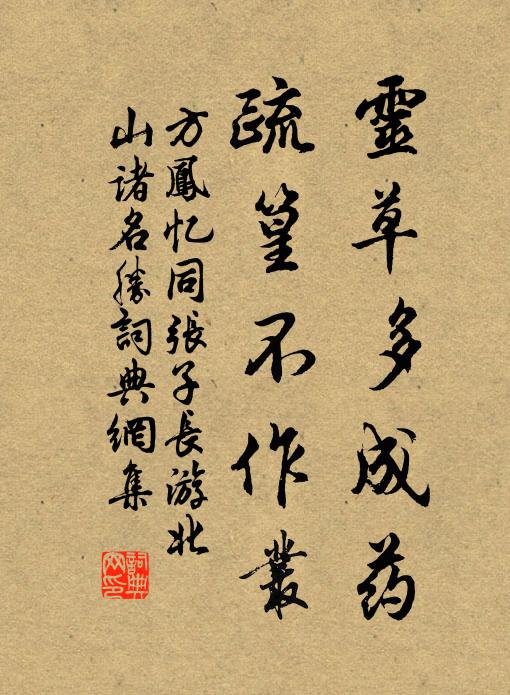 靈草多成药
疏篁不作叢
方鳳忆同張子長游北
山諸名勝詞典網集
詞典網印